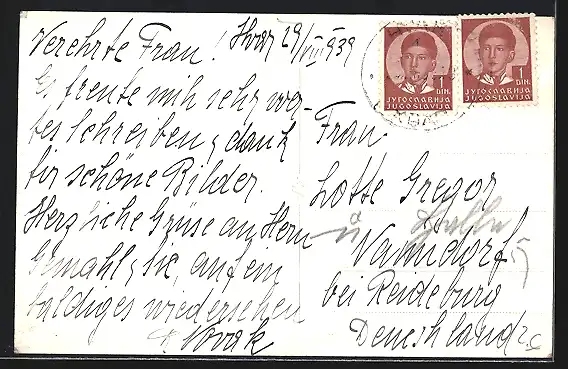 Verehrte Frau! Hvar 29/VIII 939
Es freute mih sehr wer-
tes Schreiben, dank
für schöne Bilder.
Herzliche Grüse an Herrn
Gemahl, Sie, auf ein
baldiges wiedersehen
Novak
1
DIN.
ЈУГОСЛАВИЈА
JUGOSLAVIJA
1
DIN.
ЈУГОСЛАВИЈА
JUGOSLAVIJA
Frau
Lotte Gregor
Vanndorf
bei Reideburg